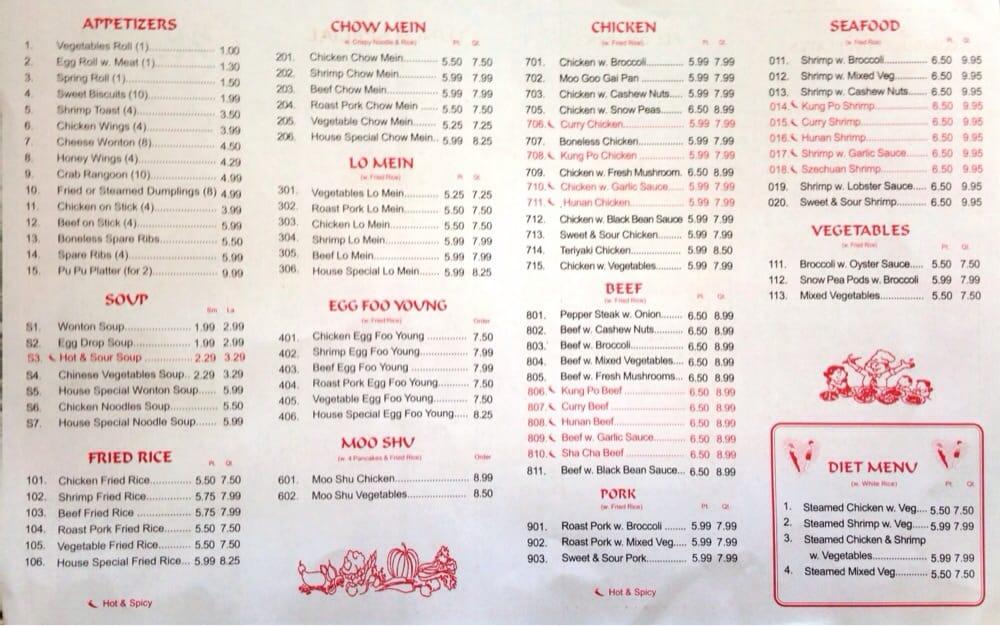 APPETIZERS
1. Vegetables Roll (1) 1.00
2. Egg Roll w. Meat (1) 1.30
3. Spring Roll (1) 1.50
4. Sweet Biscuits (10) 1.99
5. Shrimp Toast (4) 3.50
6. Chicken Wings (4) 3.99
7. Cheese Wonton (8) 4.50
8. Honey Wings (4) 4.29
9. Crab Rangoon (10) 4.99
10. Fried or Steamed Dumplings (8) 4.99
11. Chicken on Stick (4) 3.99
12. Beef on Stick (4) 5.99
13. Boneless Spare Ribs 5.50
14. Spare Ribs (4) 5.99
15. Pu Pu Platter (for 2) 9.99
SOUP
Sm La
S1. Wonton Soup 1.99 2.99
S2. Egg Drop Soup 1.99 2.99
S3. Hot & Sour Soup 2.29 3.29
S4. Chinese Vegetables Soup 2.29 3.29
S5. House Special Wonton Soup 5.99
S6. Chicken Noodles Soup 5.50
S7. House Special Noodle Soup 5.99
FRIED RICE
Pt. Qt.
101. Chicken Fried Rice 5.50 7.50
102. Shrimp Fried Rice 5.75 7.99
103. Beef Fried Rice 5.75 7.99
104. Roast Pork Fried Rice 5.50 7.50
105. Vegetable Fried Rice 5.50 7.50
106. House Special Fried Rice 5.99 8.25
Hot & Spicy
CHOW MEIN
w. Crispy Noodle & Rice)
Pt. Qt.
201. Chicken Chow Mein 5.50 7.50
202. Shrimp Chow Mein 5.99 7.99
203. Beef Chow Mein 5.99 7.99
204. Roast Pork Chow Mein 5.50 7.50
205. Vegetable Chow Mein 5.25 7.25
206. House Special Chow Mein 5.99 8.25
LO MEIN
Pt. Qt.
301. Vegetables Lo Mein 5.25 7.25
302. Roast Pork Lo Mein 5.50 7.50
303. Chicken Lo Mein 5.50 7.50
304. Shrimp Lo Mein 5.99 7.99
305. Beef Lo Mein 5.99 7.99
306. House Special Lo Mein 5.99 8.25
EGG FOO YOUNG
(w. Fried Rice)
Order
401. Chicken Egg Foo Young 7.50
402. Shrimp Egg Foo Young 7.99
403. Beef Egg Foo Young 7.99
404. Roast Pork Egg Foo Young 7.50
405. Vegetable Egg Foo Young 7.50
406. House Special Egg Foo Young 8.25
MOO SHU
(w. 4 Pancakes & Fried Rice)
Order
601. Moo Shu Chicken 8.99
602. Moo Shu Vegetables 8.50
CHICKEN
(w. Fried Rice)
Pt. Qt.
701. Chicken w. Broccoli 5.99 7.99
702. Moo Goo Gai Pan 5.99 7.99
703. Chicken w. Cashew Nuts 5.99 7.99
705. Chicken w. Snow Peas 6.50 8.99
706. Curry Chicken 5.99 7.99
707. Boneless Chicken 5.99 7.99
708. Kung Po Chicken 5.99 7.99
709. Chicken w. Fresh Mushroom. 6.50 8.99
710. Chicken w. Garlic Sauce 5.99 7.99
711. Hunan Chicken 5.99 7.99
712. Chicken w. Black Bean Sauce 5.99 7.99
713. Sweet & Sour Chicken 5.99 7.99
714. Teriyaki Chicken 5.99 8.50
715. Chicken w. Vegetables 5.99 7.99
BEEF
(w. Fried Rice)
Pt. Qt.
801. Pepper Steak w. Onion 6.50 8.99
802. Beef w. Cashew Nuts 6.50 8.99
803. Beef w. Broccoli 6.50 8.99
804. Beef w. Mixed Vegetables 6.50 8.99
805. Beef w. Fresh Mushrooms 6.50 8.99
806. Kung Po Beef 6.50 8.99
807. Curry Beef 6.50 8.99
808. Hunan Beef 6.50 8.99
809. Beef w. Garlic Sauce 6.50 8.99
810. Sha Cha Beef 6.50 8.99
811. Beef w. Black Bean Sauce 6.50 8.99
PORK
(w. Fried Rice)
Pt. Qt.
901. Roast Pork w. Broccoli 5.99 7.99
902. Roast Pork w. Mixed Veg. 5.99 7.99
903. Sweet & Sour Pork 5.99 7.99
Hot & Spicy
SEAFOOD
(w. Fried Rice)
Pt. Qt.
011. Shrimp w. Broccoli 6.50 9.95
012. Shrimp w. Mixed Veg 6.50 9.95
013. Shrimp w. Cashew Nuts 6.50 9.95
014. Kung Po Shrimp 6.50 9.95
015. Curry Shrimp 6.50 9.95
016. Hunan Shrimp 6.50 9.95
017. Shrimp w. Garlic Sauce 6.50 9.95
018. Szechuan Shrimp 6.50 9.95
019. Shrimp w. Lobster Sauce 6.50 9.95
020. Sweet & Sour Shrimp 6.50 9.95
VEGETABLES
(w. Fried Rice)
Pt. Qt.
111. Broccoli w. Oyster Sauce 5.50 7.50
112. Snow Pea Pods w. Broccoli 5.99 7.99
113. Mixed Vegetables 5.50 7.50
DIET MENU
(w. White Rice)
Pt. Qt.
1. Steamed Chicken w. Veg. 5.50 7.50
2. Steamed Shrimp w. Veg. 5.99 7.99
3. Steamed Chicken & Shrimp
w. Vegetables 5.99 7.99
4. Steamed Mixed Veg. 5.50 7.50